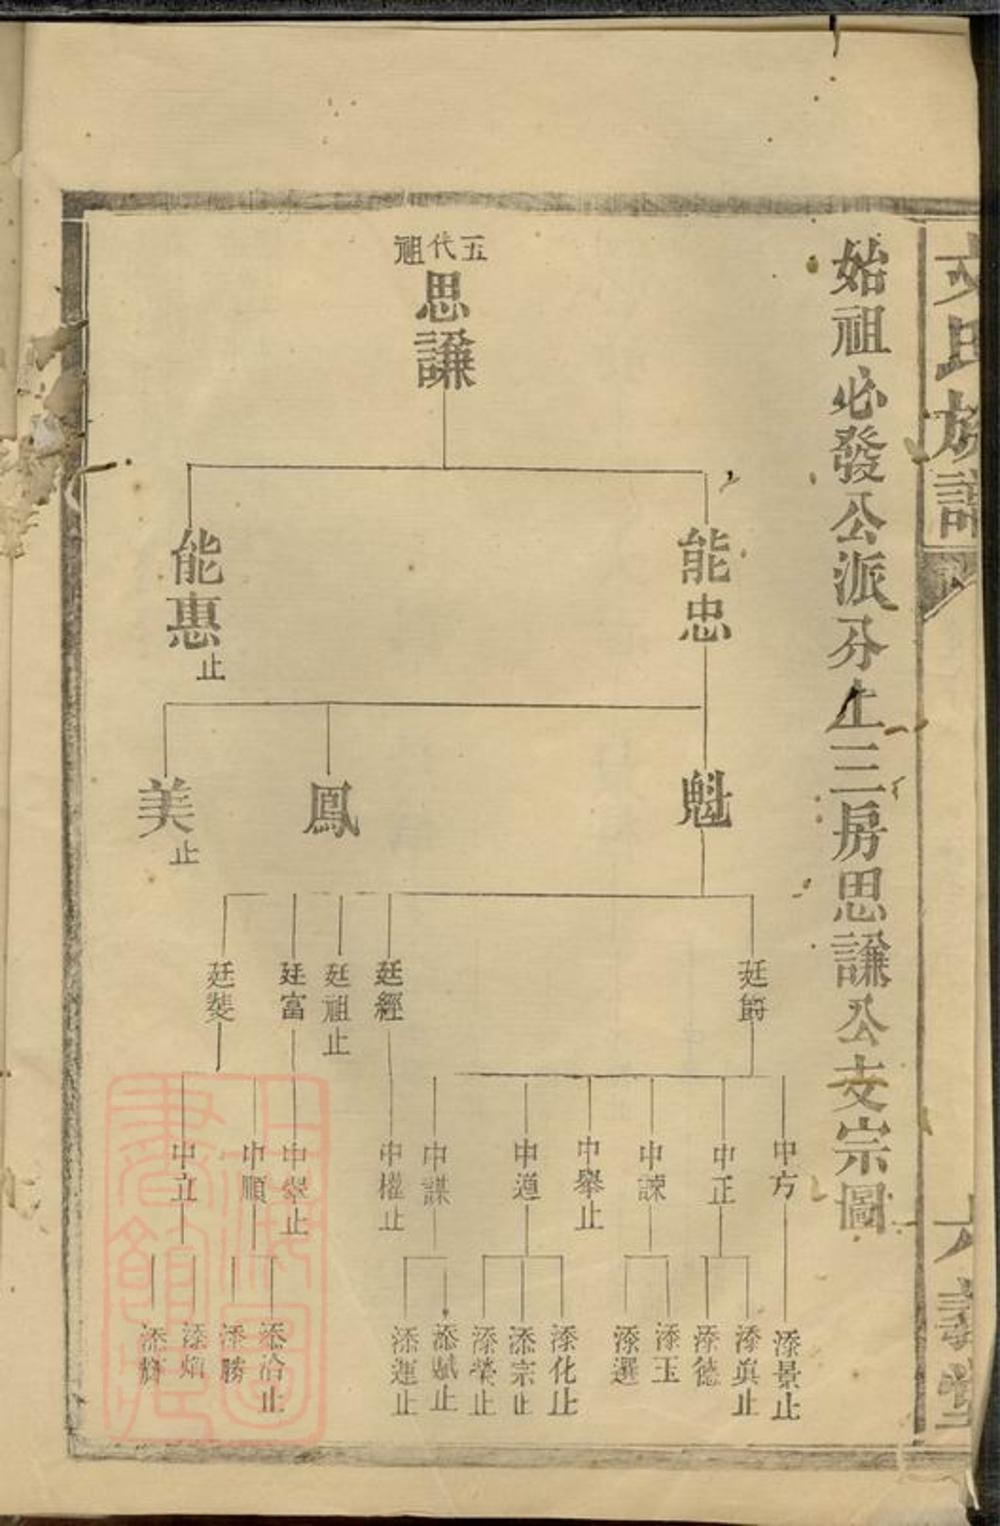 文氏族譜
六義堂
始祖必發公派分上三房思謙公支宗圖
五代祖
思謙
能忠
能惠止
魁
鳳
美止
廷爵
廷經
廷祖止
廷富
廷斐
中方
中正
中諫
中舉止
中道
中謀
中權止
中舉止
中順
中立
添景止
添真止
添德
添玉
添選
添化止
添宗止
添榮止
添賦止
添運止
添洽止
添勝
添炳
添輝
上海圖書館藏